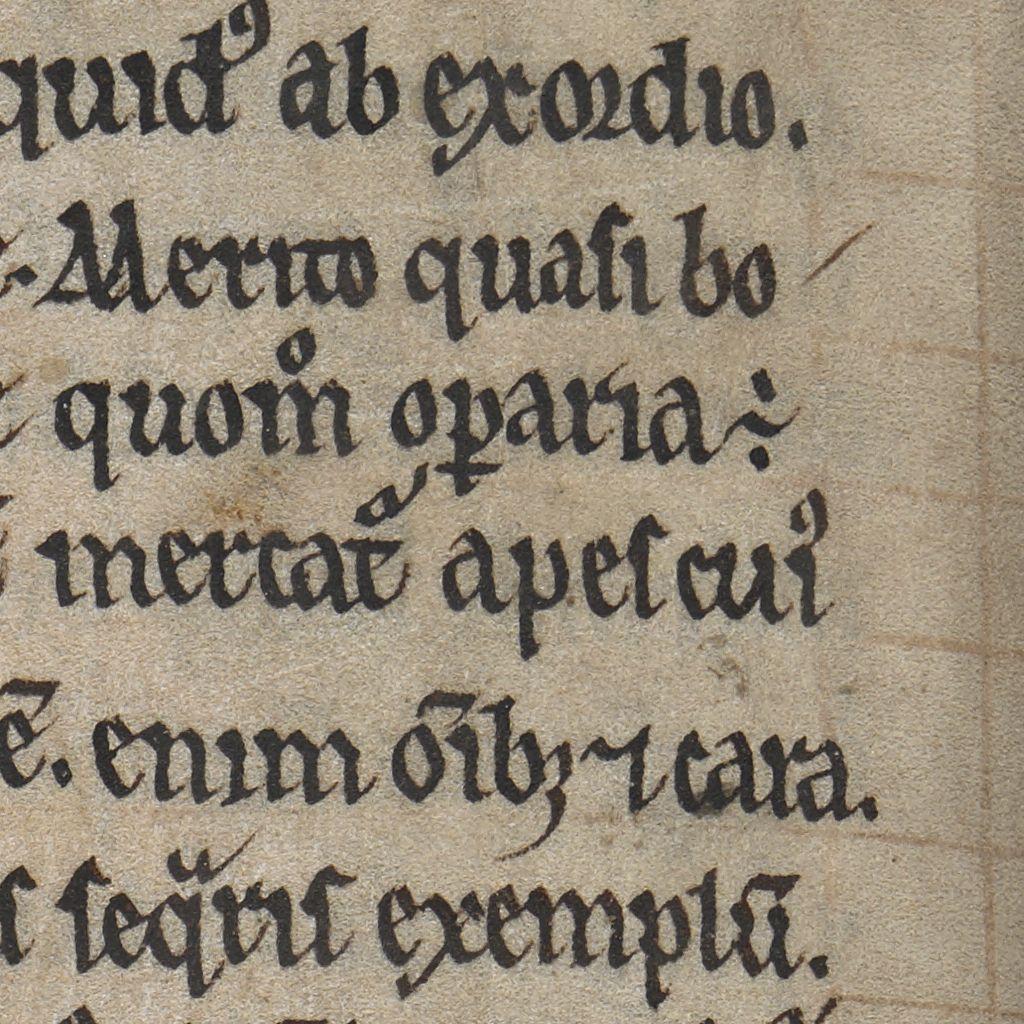 quidꝰ ab exordio.
Merito quasi bo
quom̊ oꝑaria
mercat᷑ apes cuiꝰ
ē. enim oı̄bꝫ ⁊ cara.
seqͥris exemplū.